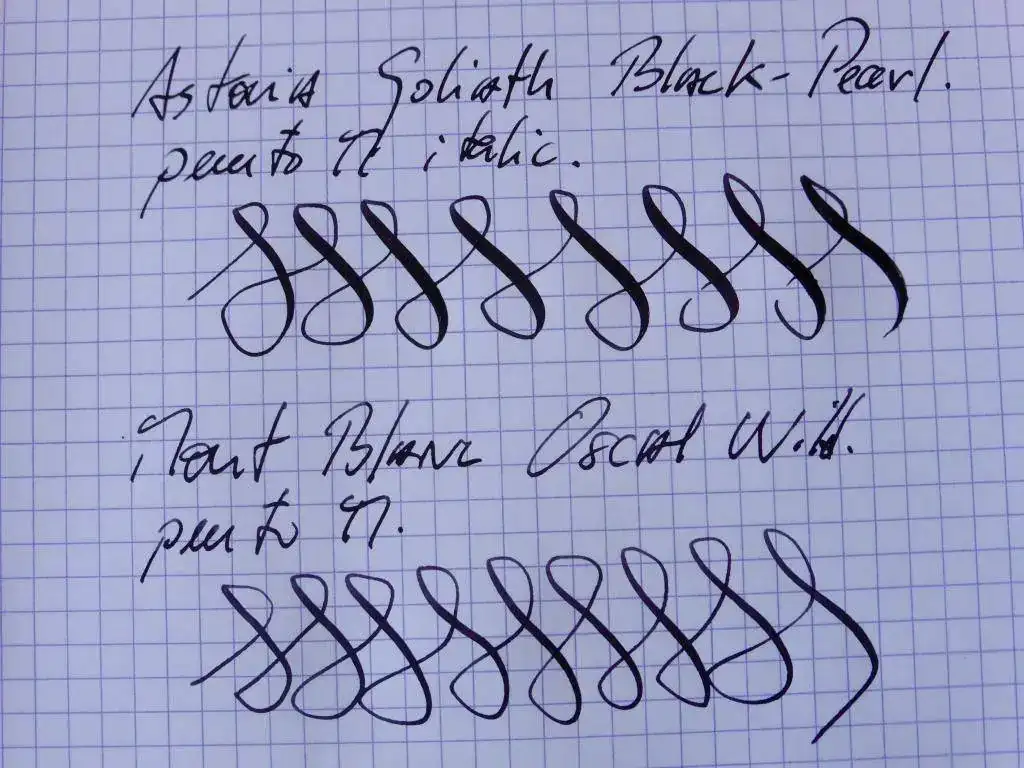 Astoria Goliath Black-Pearl.
punto M italic.
Mont Blanc Oscar Wild.
punto M.